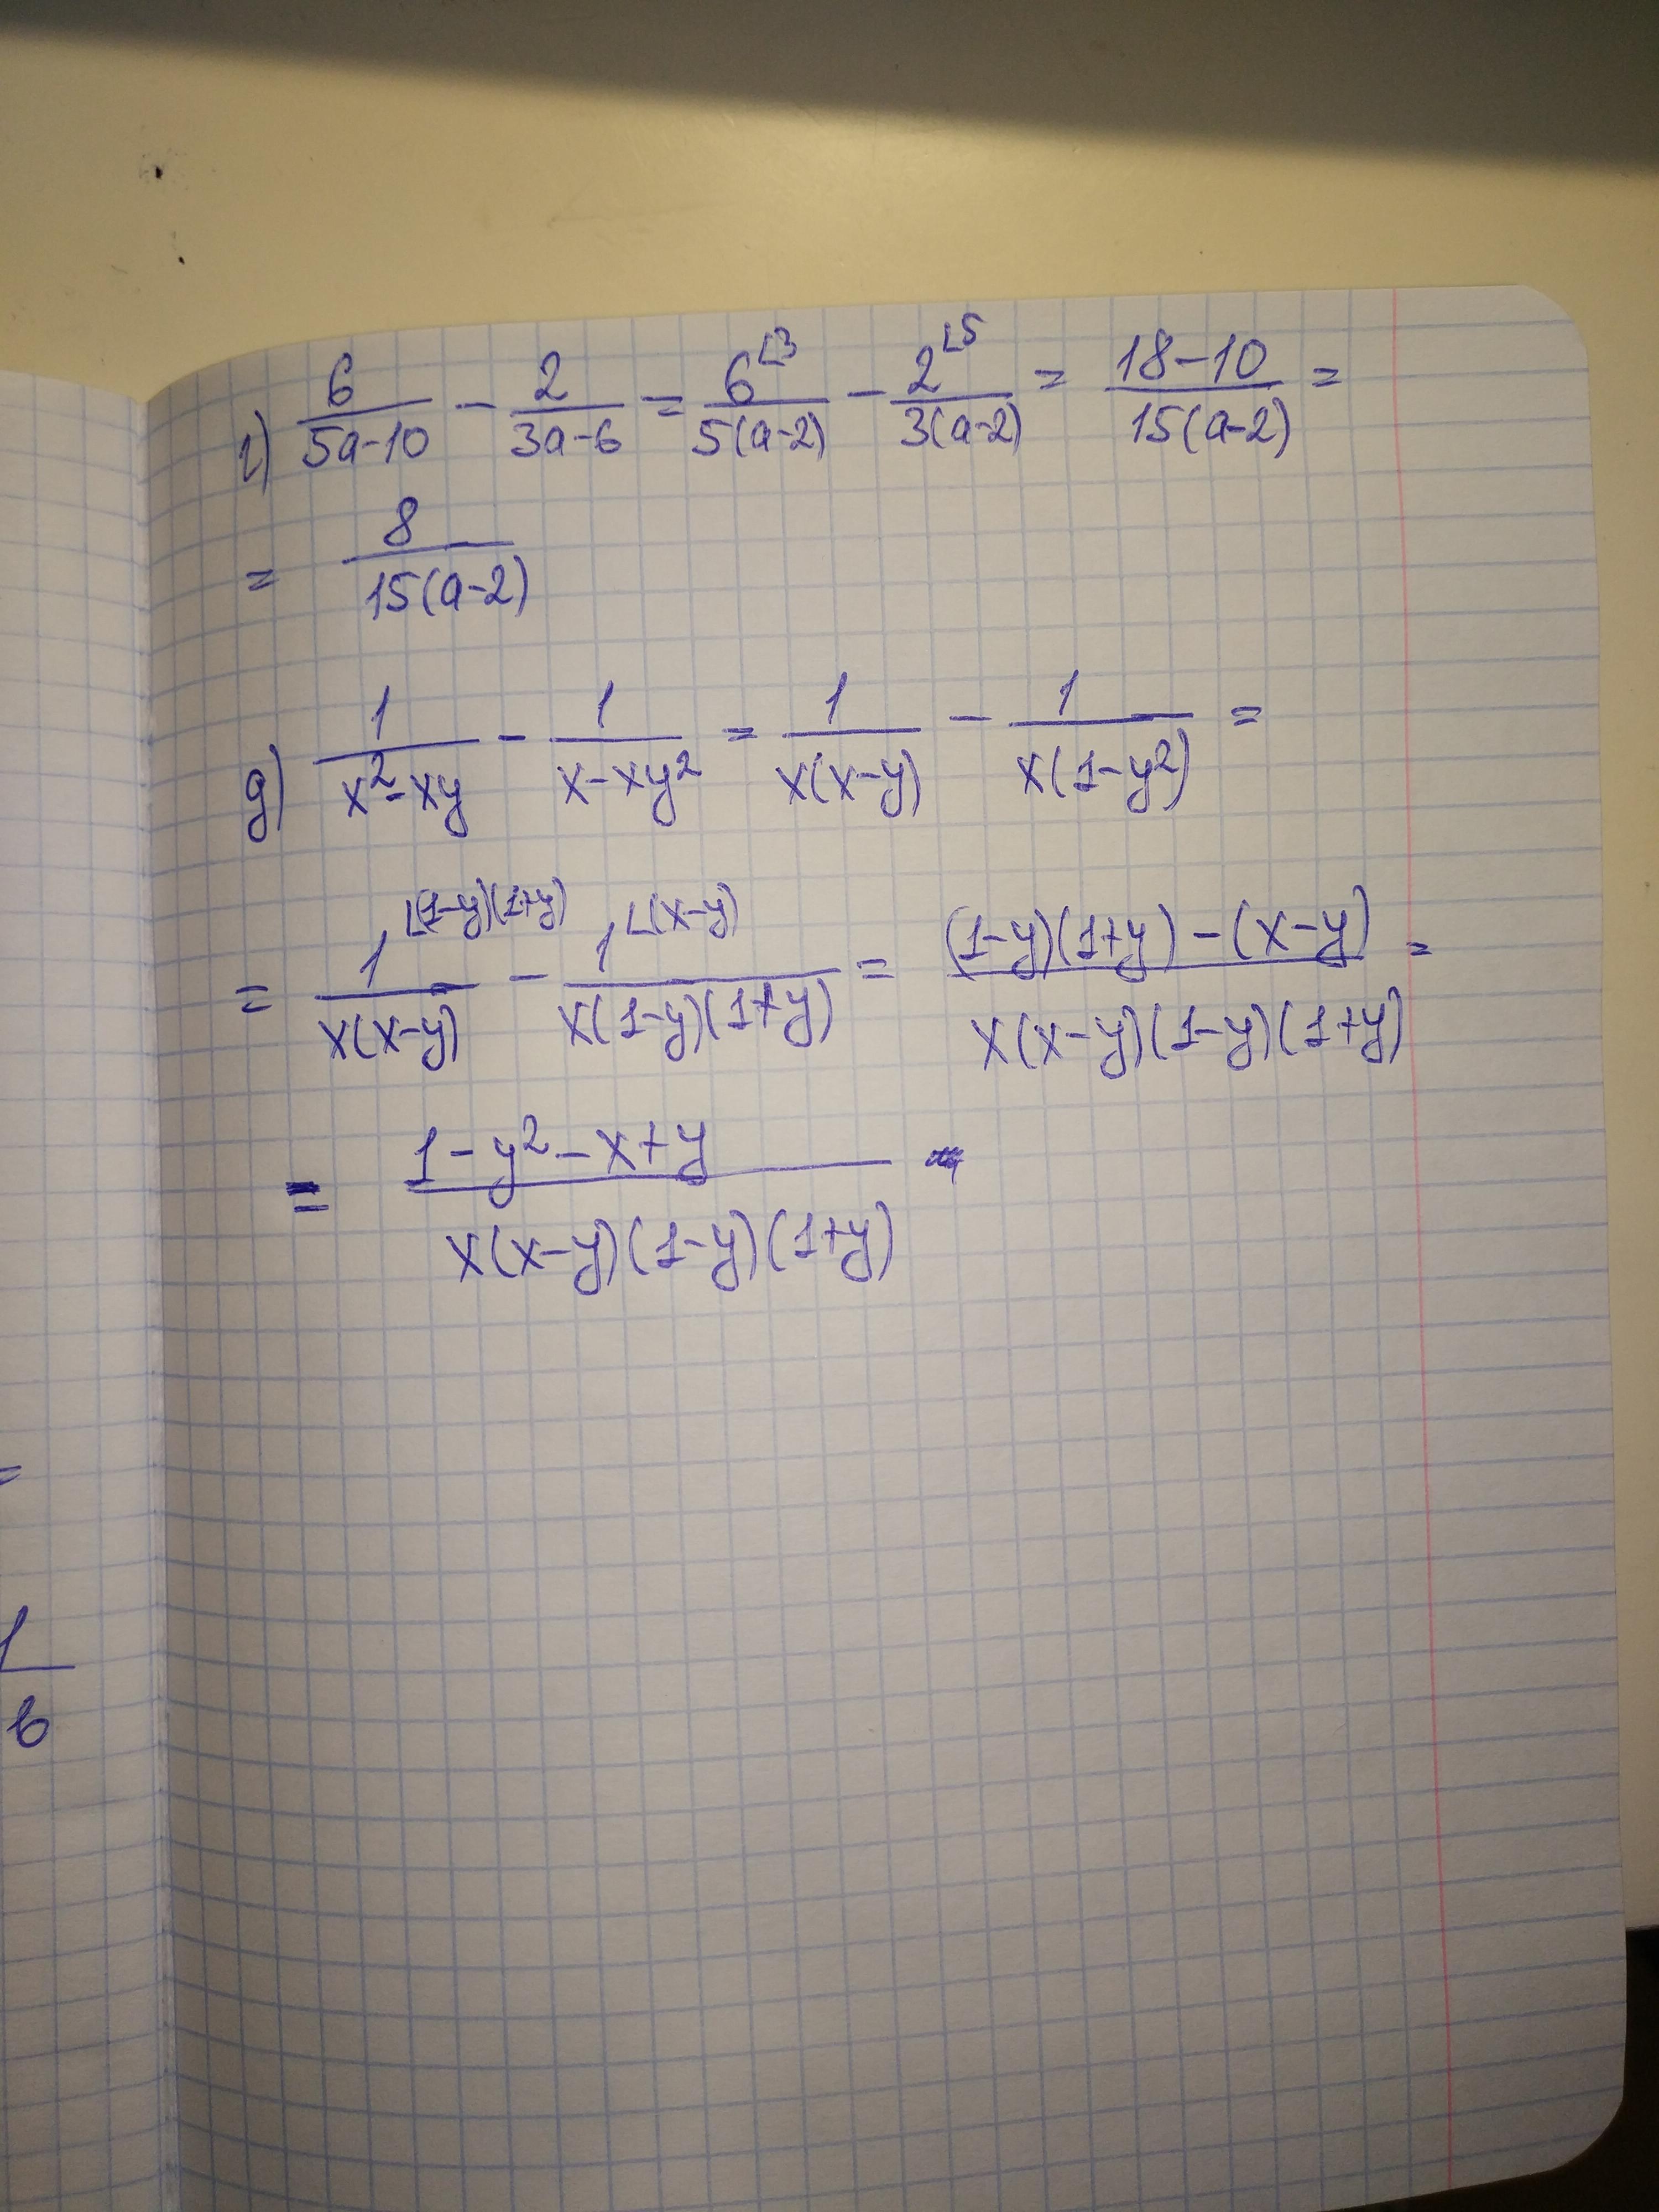 г) 6/(5a-10) - 2/(3a-6) = 6^{∟3}/(5(a-2)) - 2^{∟5}/(3(a-2)) = (18-10)/(15(a-2)) =
= 8/(15(a-2))
g) 1/(x²-xy) - 1/(x-xy²) = 1/(x(x-y)) - 1/(x(1-y²)) =
= 1^{∟(1-y)(1+y)}/(x(x-y)) - 1^{∟(x-y)}/(x(1-y)(1+y)) = ((1-y)(1+y)-(x-y))/(x(x-y)(1-y)(1+y)) =
= (1-y²-x+y)/(x(x-y)(1-y)(1+y))
=
1/b